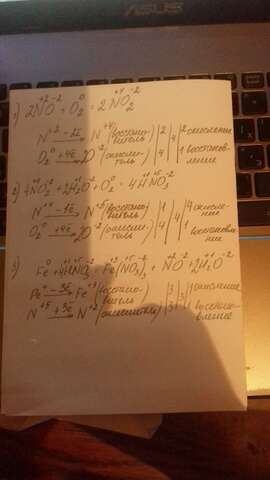 ASUS
1) 2N⁺²O⁻² + O₂⁰ = 2N⁺⁴O₂⁻²
N⁺² −2ē → N⁺⁴ (восстано-витель) | 2 | 4 | 2 окисление
O₂⁰ +4ē → 2O⁻² (окисли-тель) | 4 | | 1 восстанов-ление
2) 4N⁺⁴O₂⁻² + 2H₂⁺¹O⁻² + O₂⁰ = 4H⁺¹N⁺⁵O₃⁻²
N⁺⁴ −1ē → N⁺⁵ (восстано-витель) | 1 | 4 | 4 окисле-ние
O₂⁰ +4ē → 2O⁻² (окисли-тель) | 4 | | 1 восстанов-ление
3) Fe⁰ + 4H⁺¹N⁺⁵O₃⁻² = Fe⁺³(N⁺⁵O₃⁻²)₃ + N⁺²O⁻² + 2H₂⁺¹O⁻²
Fe⁰ −3ē → Fe⁺³ (восстано-витель) | 3 | 3 | 1 окисление
N⁺⁵ +3ē → N⁺² (окислитель) | 3 | | 1 восстано-вление